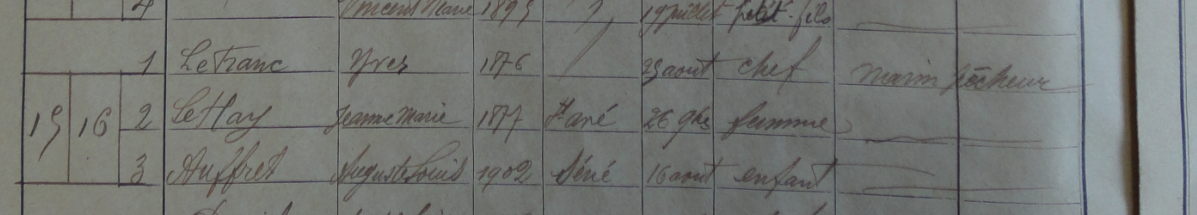 4 Vincent Marie 1895 19 juillet petit-fils
1 Le Franc Yves 1876 23 aout chef marin pêcheur
15 16 2 Le Hay Jeanne Marie 1877 St avé 26 9bre femme
3 Auffret Auguste Louis 1902 Séné 16 aout enfant